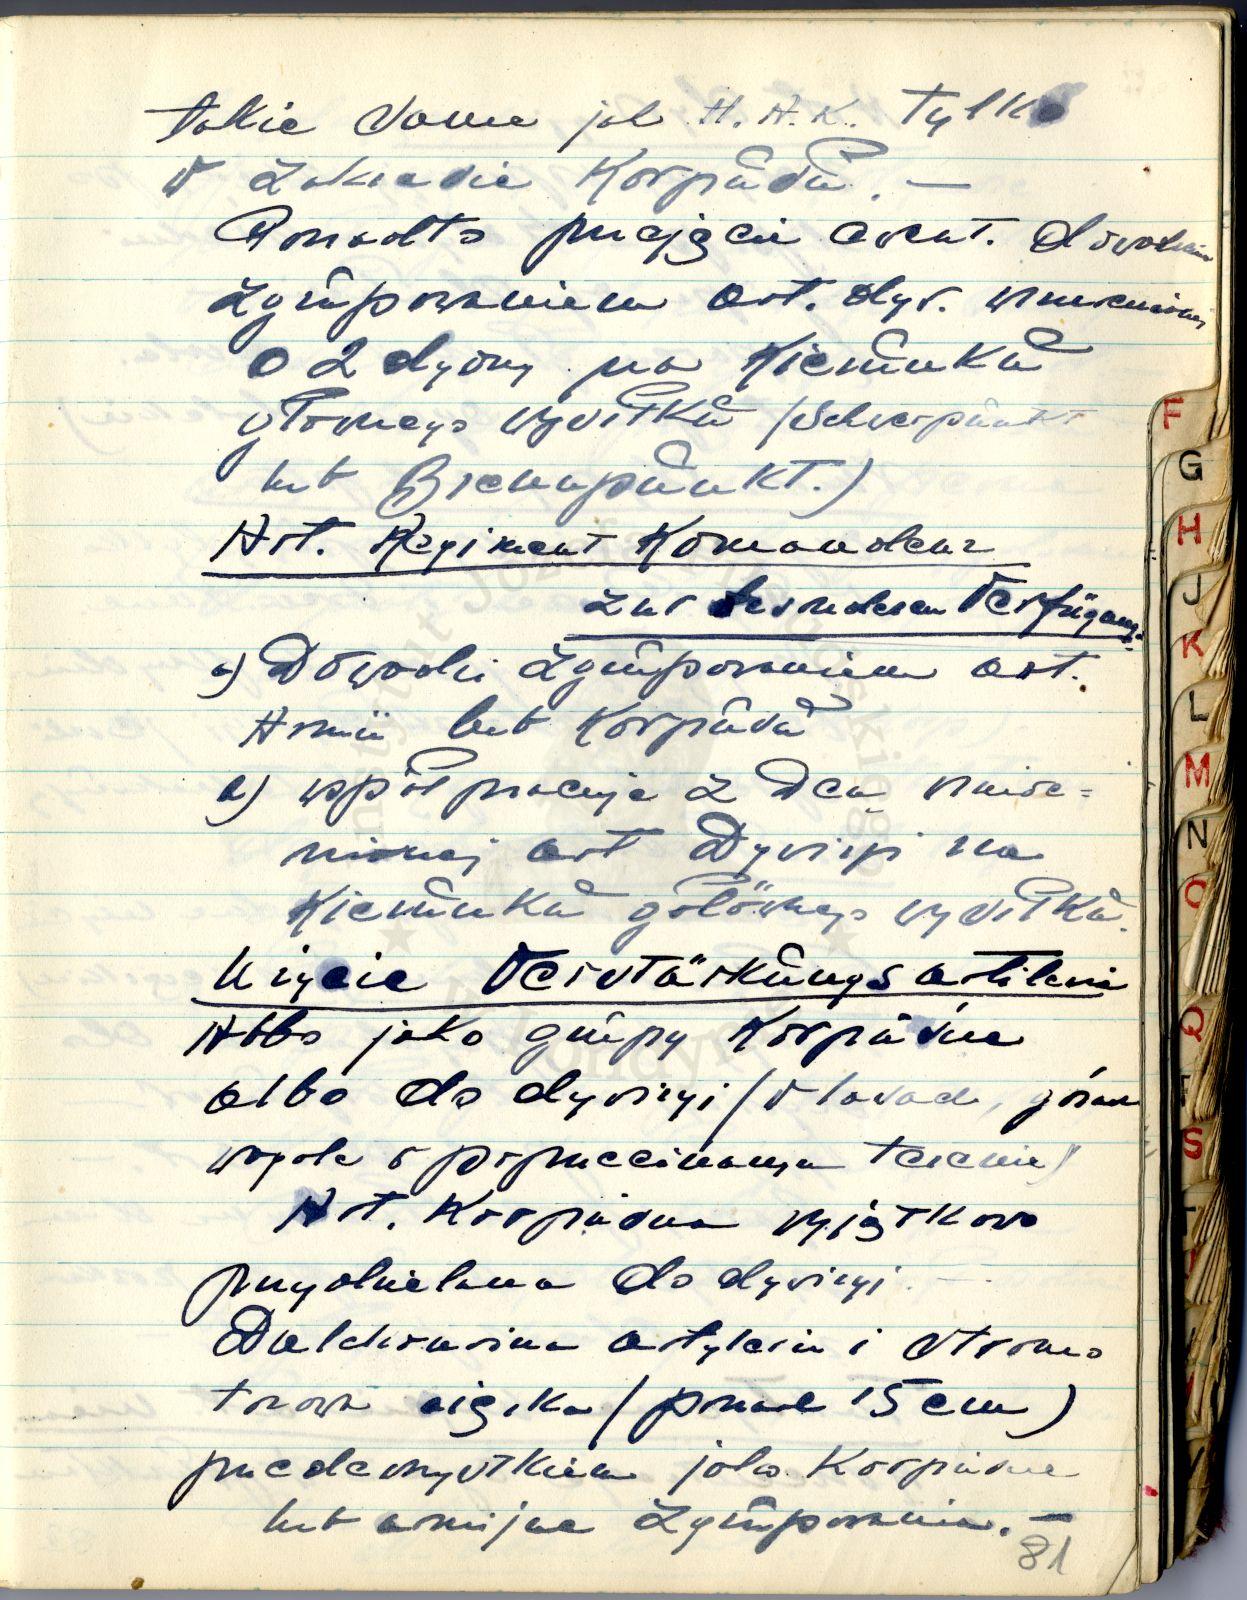 takie same jak H.A.K. tylko
w zakresie Korpusu. —
Ponadto przejęcie ewent. dowodzenia
zgrupowaniem art. dyw. wzmocnionej
o 2 dyony na kierunku
głównego wysiłku (Schwerpunkt
lub Brennpunkt.)
Art. Regiment Komandeur
zur besonderen Verfügung.
a) Dowodzi zgrupowaniem art.
Armii lub Korpusu
b) współpracuje z Dcą wzmoc=
nionej art Dywizji na
kierunku głównego wysiłku.
Użycie Verstärkungsartilerie
Albo jako grupy Korpuśne
albo do dywizyi (w lasach, górach
wogóle w poprzecinanym terenie)
Art. Korpuśna wyjątkowo
przydzielana do dywizyi. —
Dalekonośna artyleria i stromo
torowa ciężka (ponad 15 cm)
przedewszystkiem jako Korpuśne
lub armijne zgrupowania. —
81
F
G
H
J
K
L
M
N
O
Q
S
Instytut Józefa Piłsudskiego
Londyn